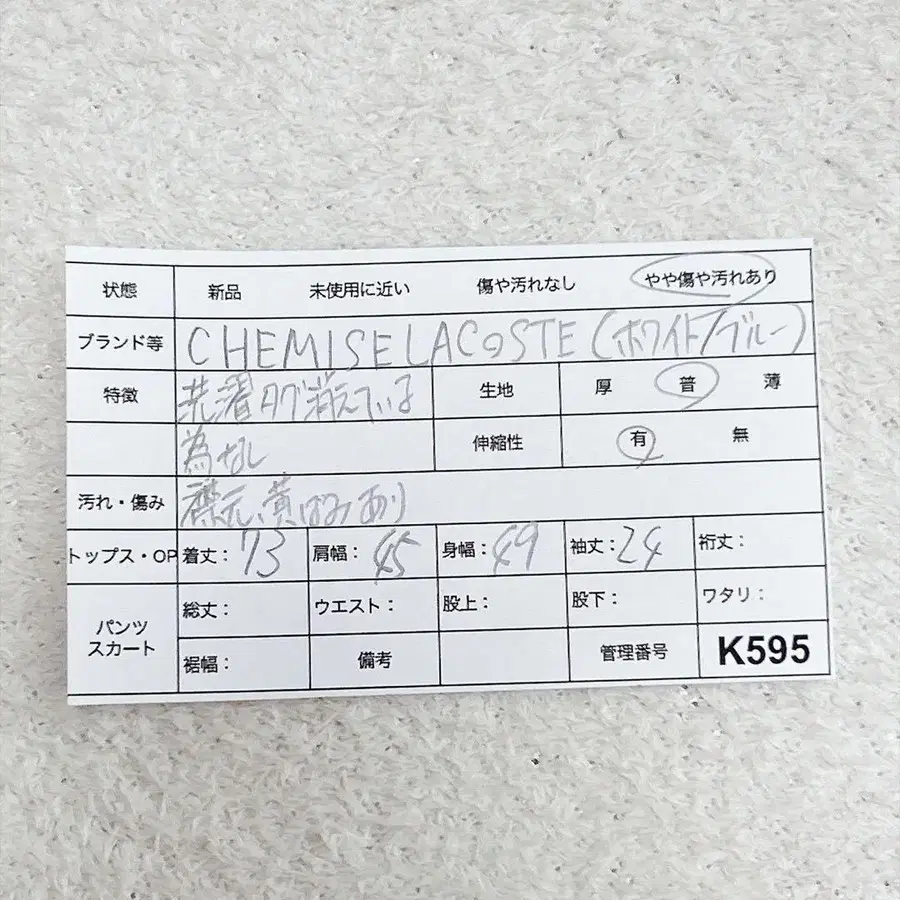 状態 新品 未使用に近い 傷や汚れなし やや傷や汚れあり
ブランド等 CHEMISE LACOSTE (ホワイト/ブルー)
特徴 洗濯タグ消えている 生地 厚 普 薄
為なし 伸縮性 有 無
汚れ・傷み 襟元、黄ばみあり
トップス・OP 着丈: 73 肩幅: 45 身幅: 49 袖丈: 24 裄丈:
パンツ スカート 総丈: ウエスト: 股上: 股下: ワタリ:
裾幅: 備考 管理番号 K595